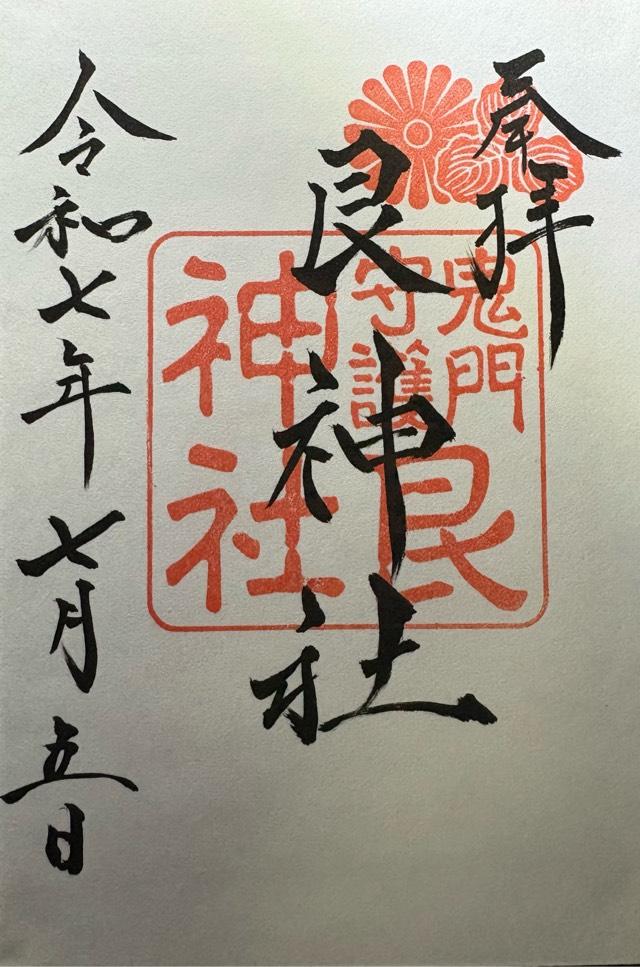 奉拝
鬼門
守護
艮
神社
艮神社
令和七年七月五日